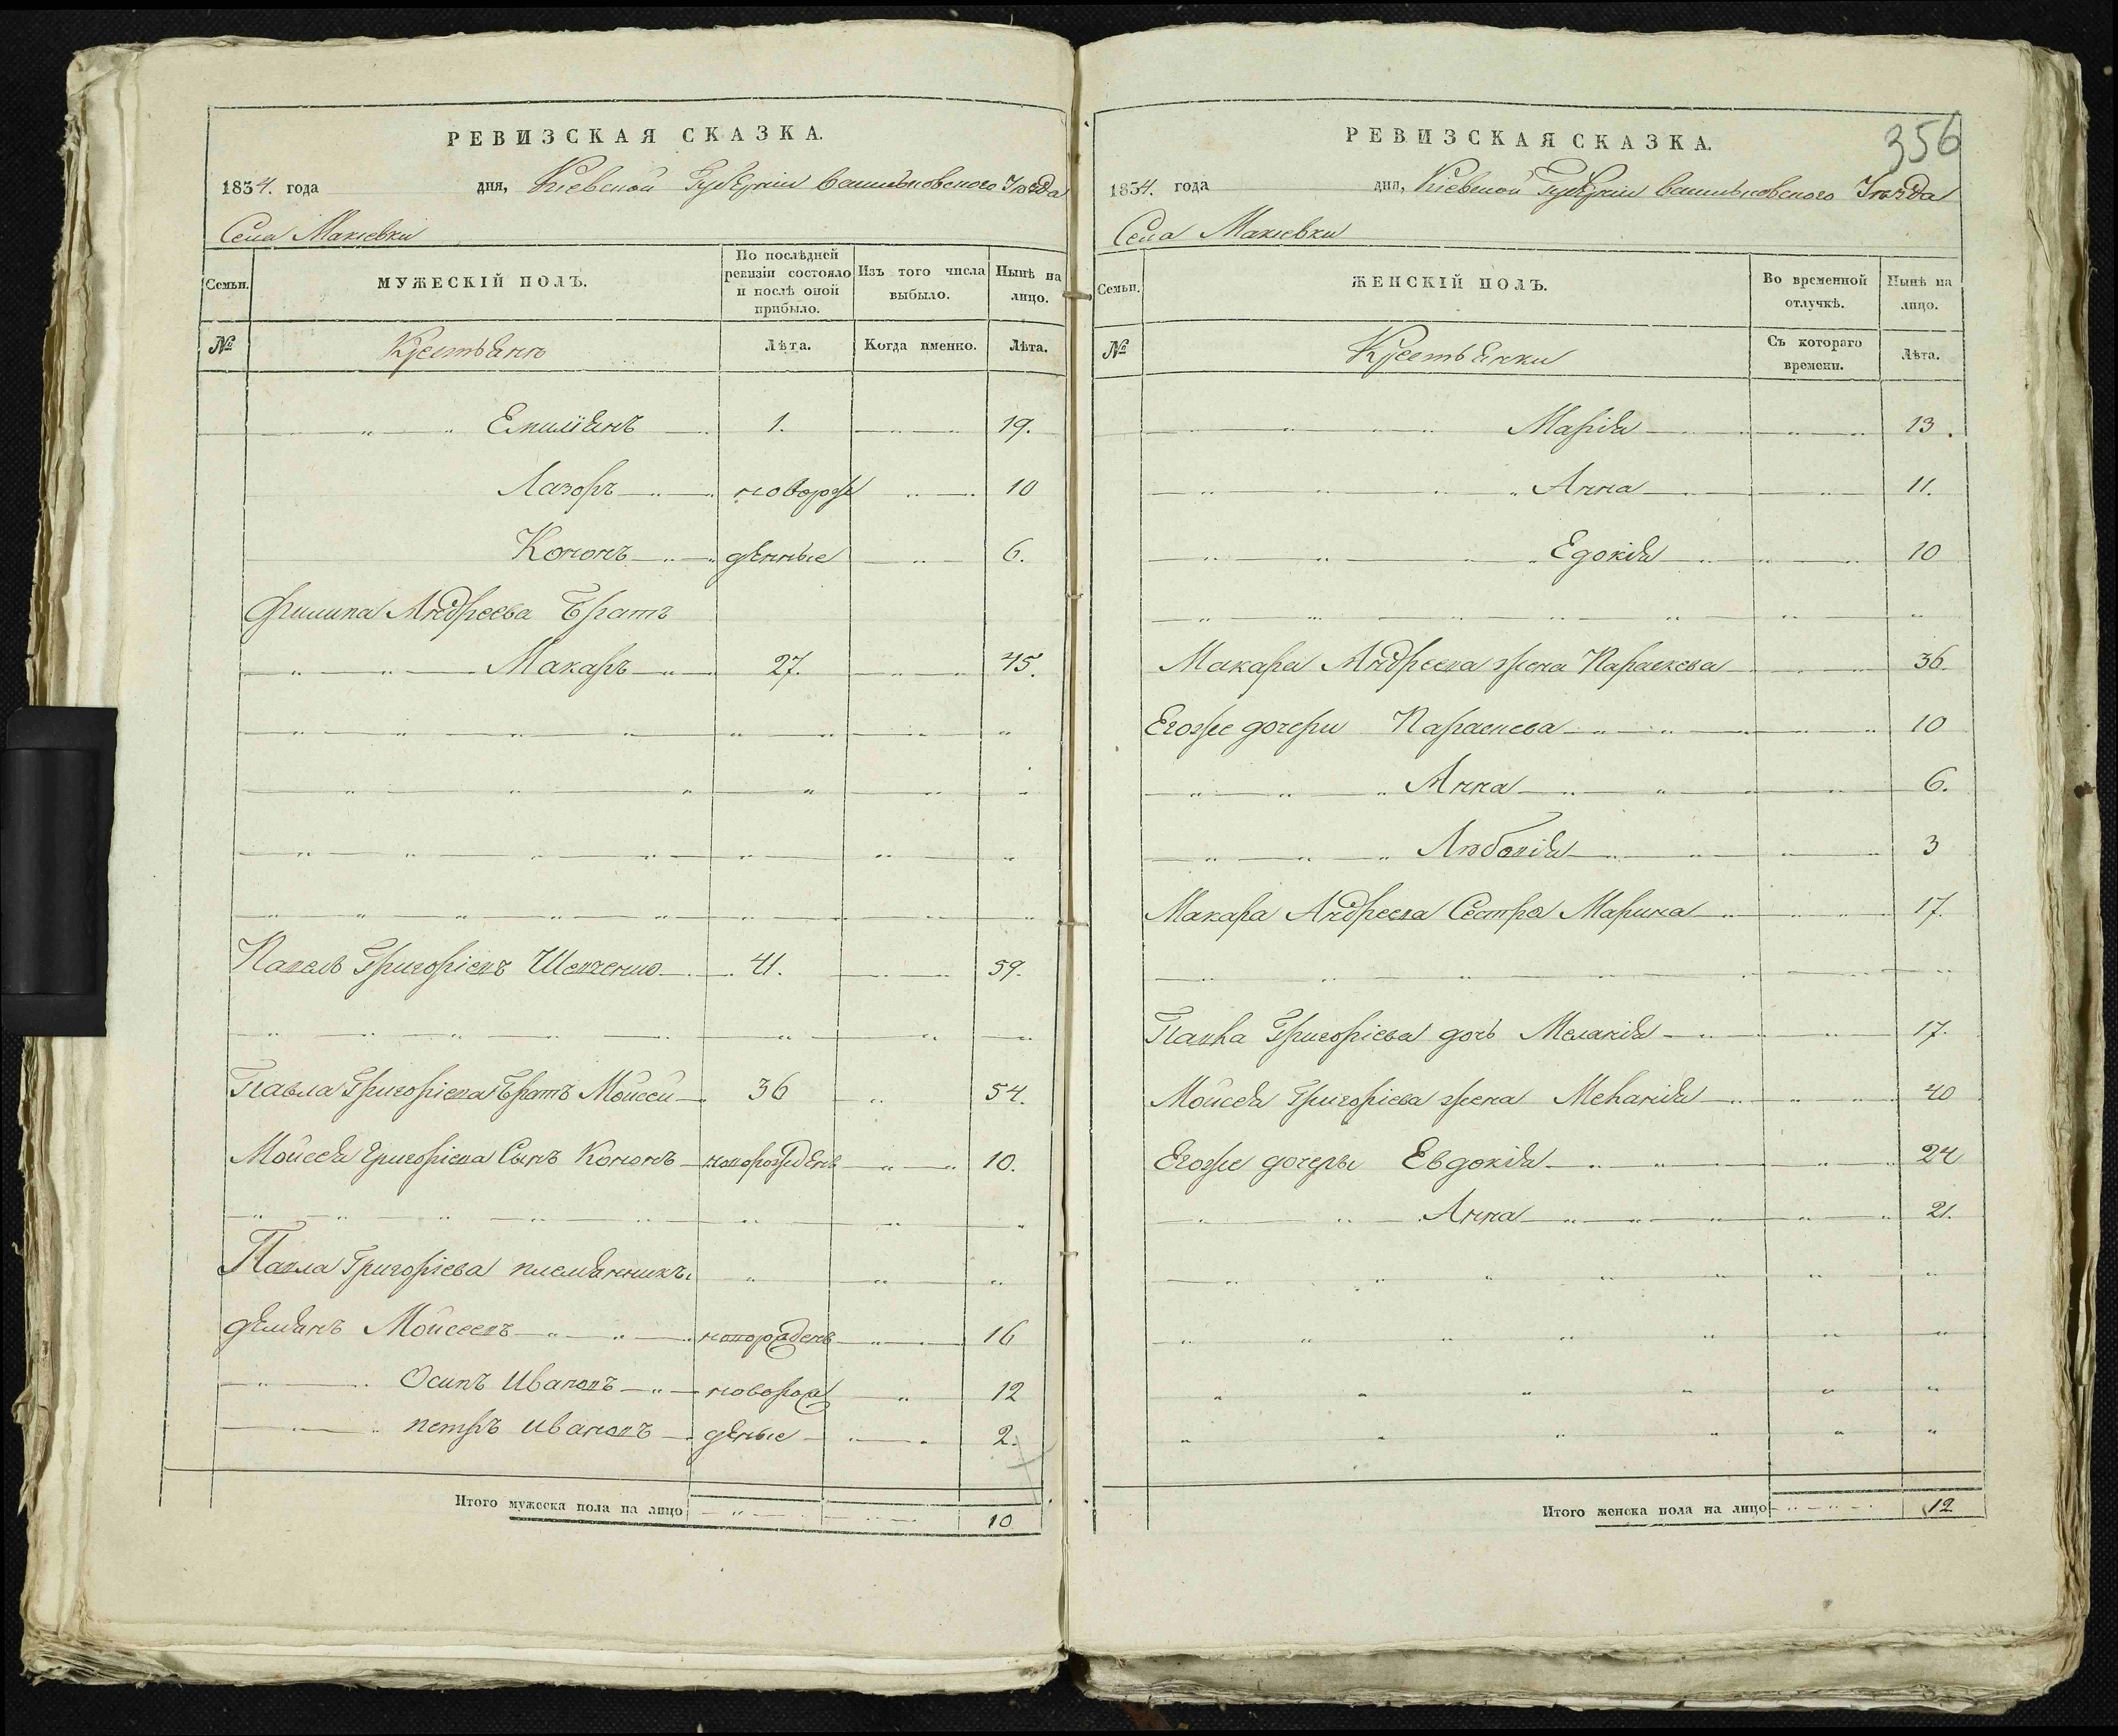 РЕВИЗСКАЯ СКАЗКА.
1834. года дня, Кіевской Губерніи Васильковского Уезда
Села Макіевки
Семьи. МУЖЕСКІЙ ПОЛЪ. По послѣдней ревизіи состояло и послѣ оной прибыло. Изъ того числа выбыло. Нынѣ на лицо.
№ Крестьянъ Лѣта. Когда именно. Лѣта.
Емиліянъ 1. 19.
Лазоръ новорж 10
Кононъ денные 6.
Филипа Андреева Братъ
Макаръ 27. 45.
Павелъ Григоріевъ Шевченко 41. 59.
Павла Григоріева Братъ Мойсей 36 54.
Мойсея Григоріева Сынъ Кононъ новорожденъ 10.
Павла Григоріева племянникъ
демянъ Мойсеевъ 16
Осипъ Ивановъ новорож 12
петръ Ивановъ деные 2.
Итого мужеска пола на лицо 10
356
РЕВИЗСКАЯ СКАЗКА.
1834. года дня, Кіевской Губерніи Васильковского Уезда
Села Макіевки
Семьи. ЖЕНСКІЙ ПОЛЪ. Во временной отлучкѣ. Нынѣ на лицо.
№ Крестьянки Съ котораго времени. Лѣта.
Марія 13.
Анна 11.
Едокія 10
Макара Андреева жена Параскева 36.
Егоже дочери Параскева 10
Анна 6.
Любовія 3
Макара Андреева Сестра Марина 17.
Павла Григоріева дочь Меланія 17.
Мойсея Григоріева жена Меланія 40
Егоже дочеры Евдокія 24
Анна 21.
Итого женска пола на лицо 12